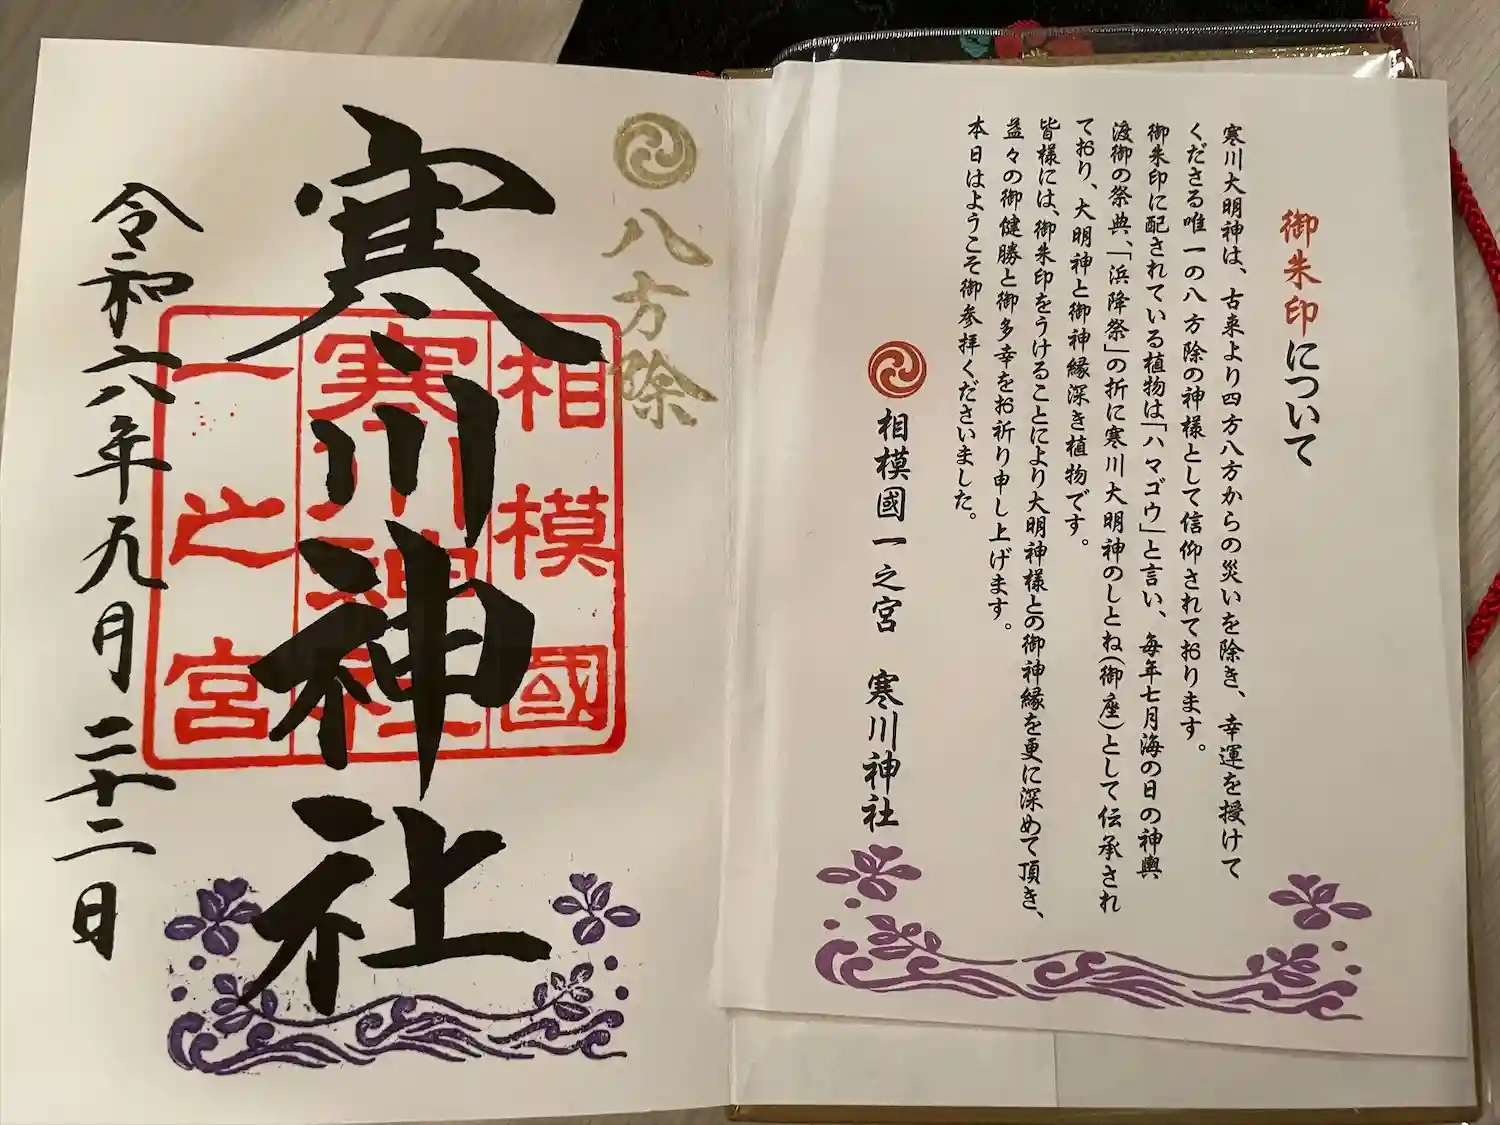 八方除
寒川神社
相模國
寒川神社
一之宮
令和六年九月二十二日
御朱印について
寒川大明神は、古来より四方八方からの災いを除き、幸運を授けて
くださる唯一の八方除の神様として信仰されております。
御朱印に配されている植物は「ハマゴウ」と言い、毎年七月海の日の神輿
渡御の祭典、「浜降祭」の折に寒川大明神のしとね(御座)として伝承され
ており、大明神と御神縁深き植物です。
皆様には、御朱印をうけることにより大明神様との御神縁を更に深めて頂き、
益々の御健勝と御多幸をお祈り申し上げます。
本日はようこそ御参拝くださいました。
相模國一之宮 寒川神社